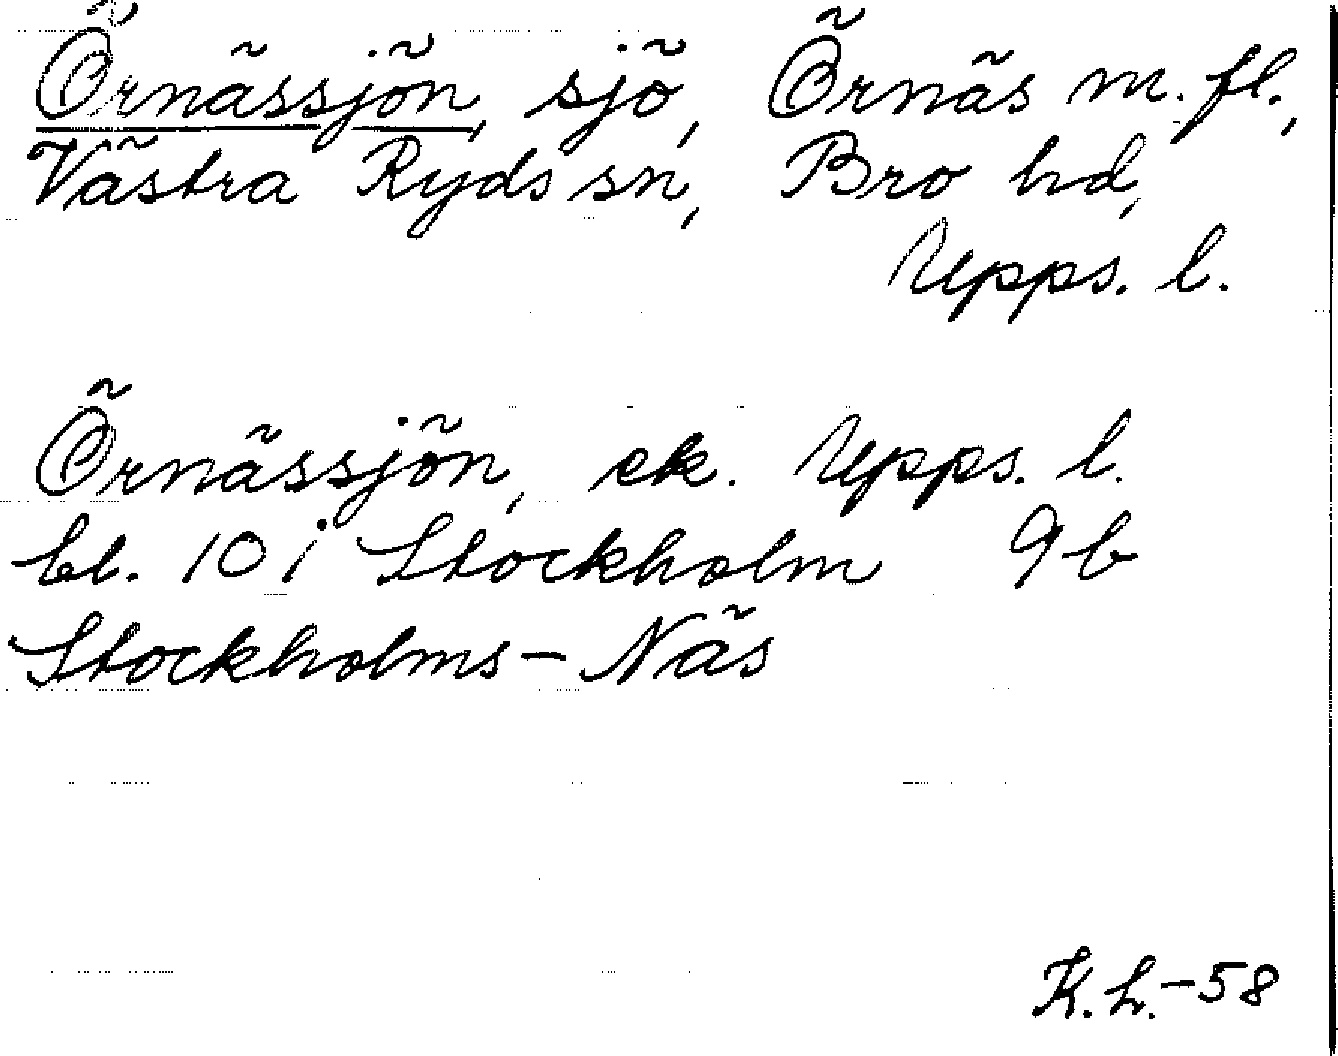 Örnässjön, sjö, Örnäs m. fl.,
Västra Ryds sn, Bro hd,
Upps. l.
Örnässjön, ek. Upps. l.
bl. 10 i Stockholm 9b
Stockholms-Näs
K.L.-58